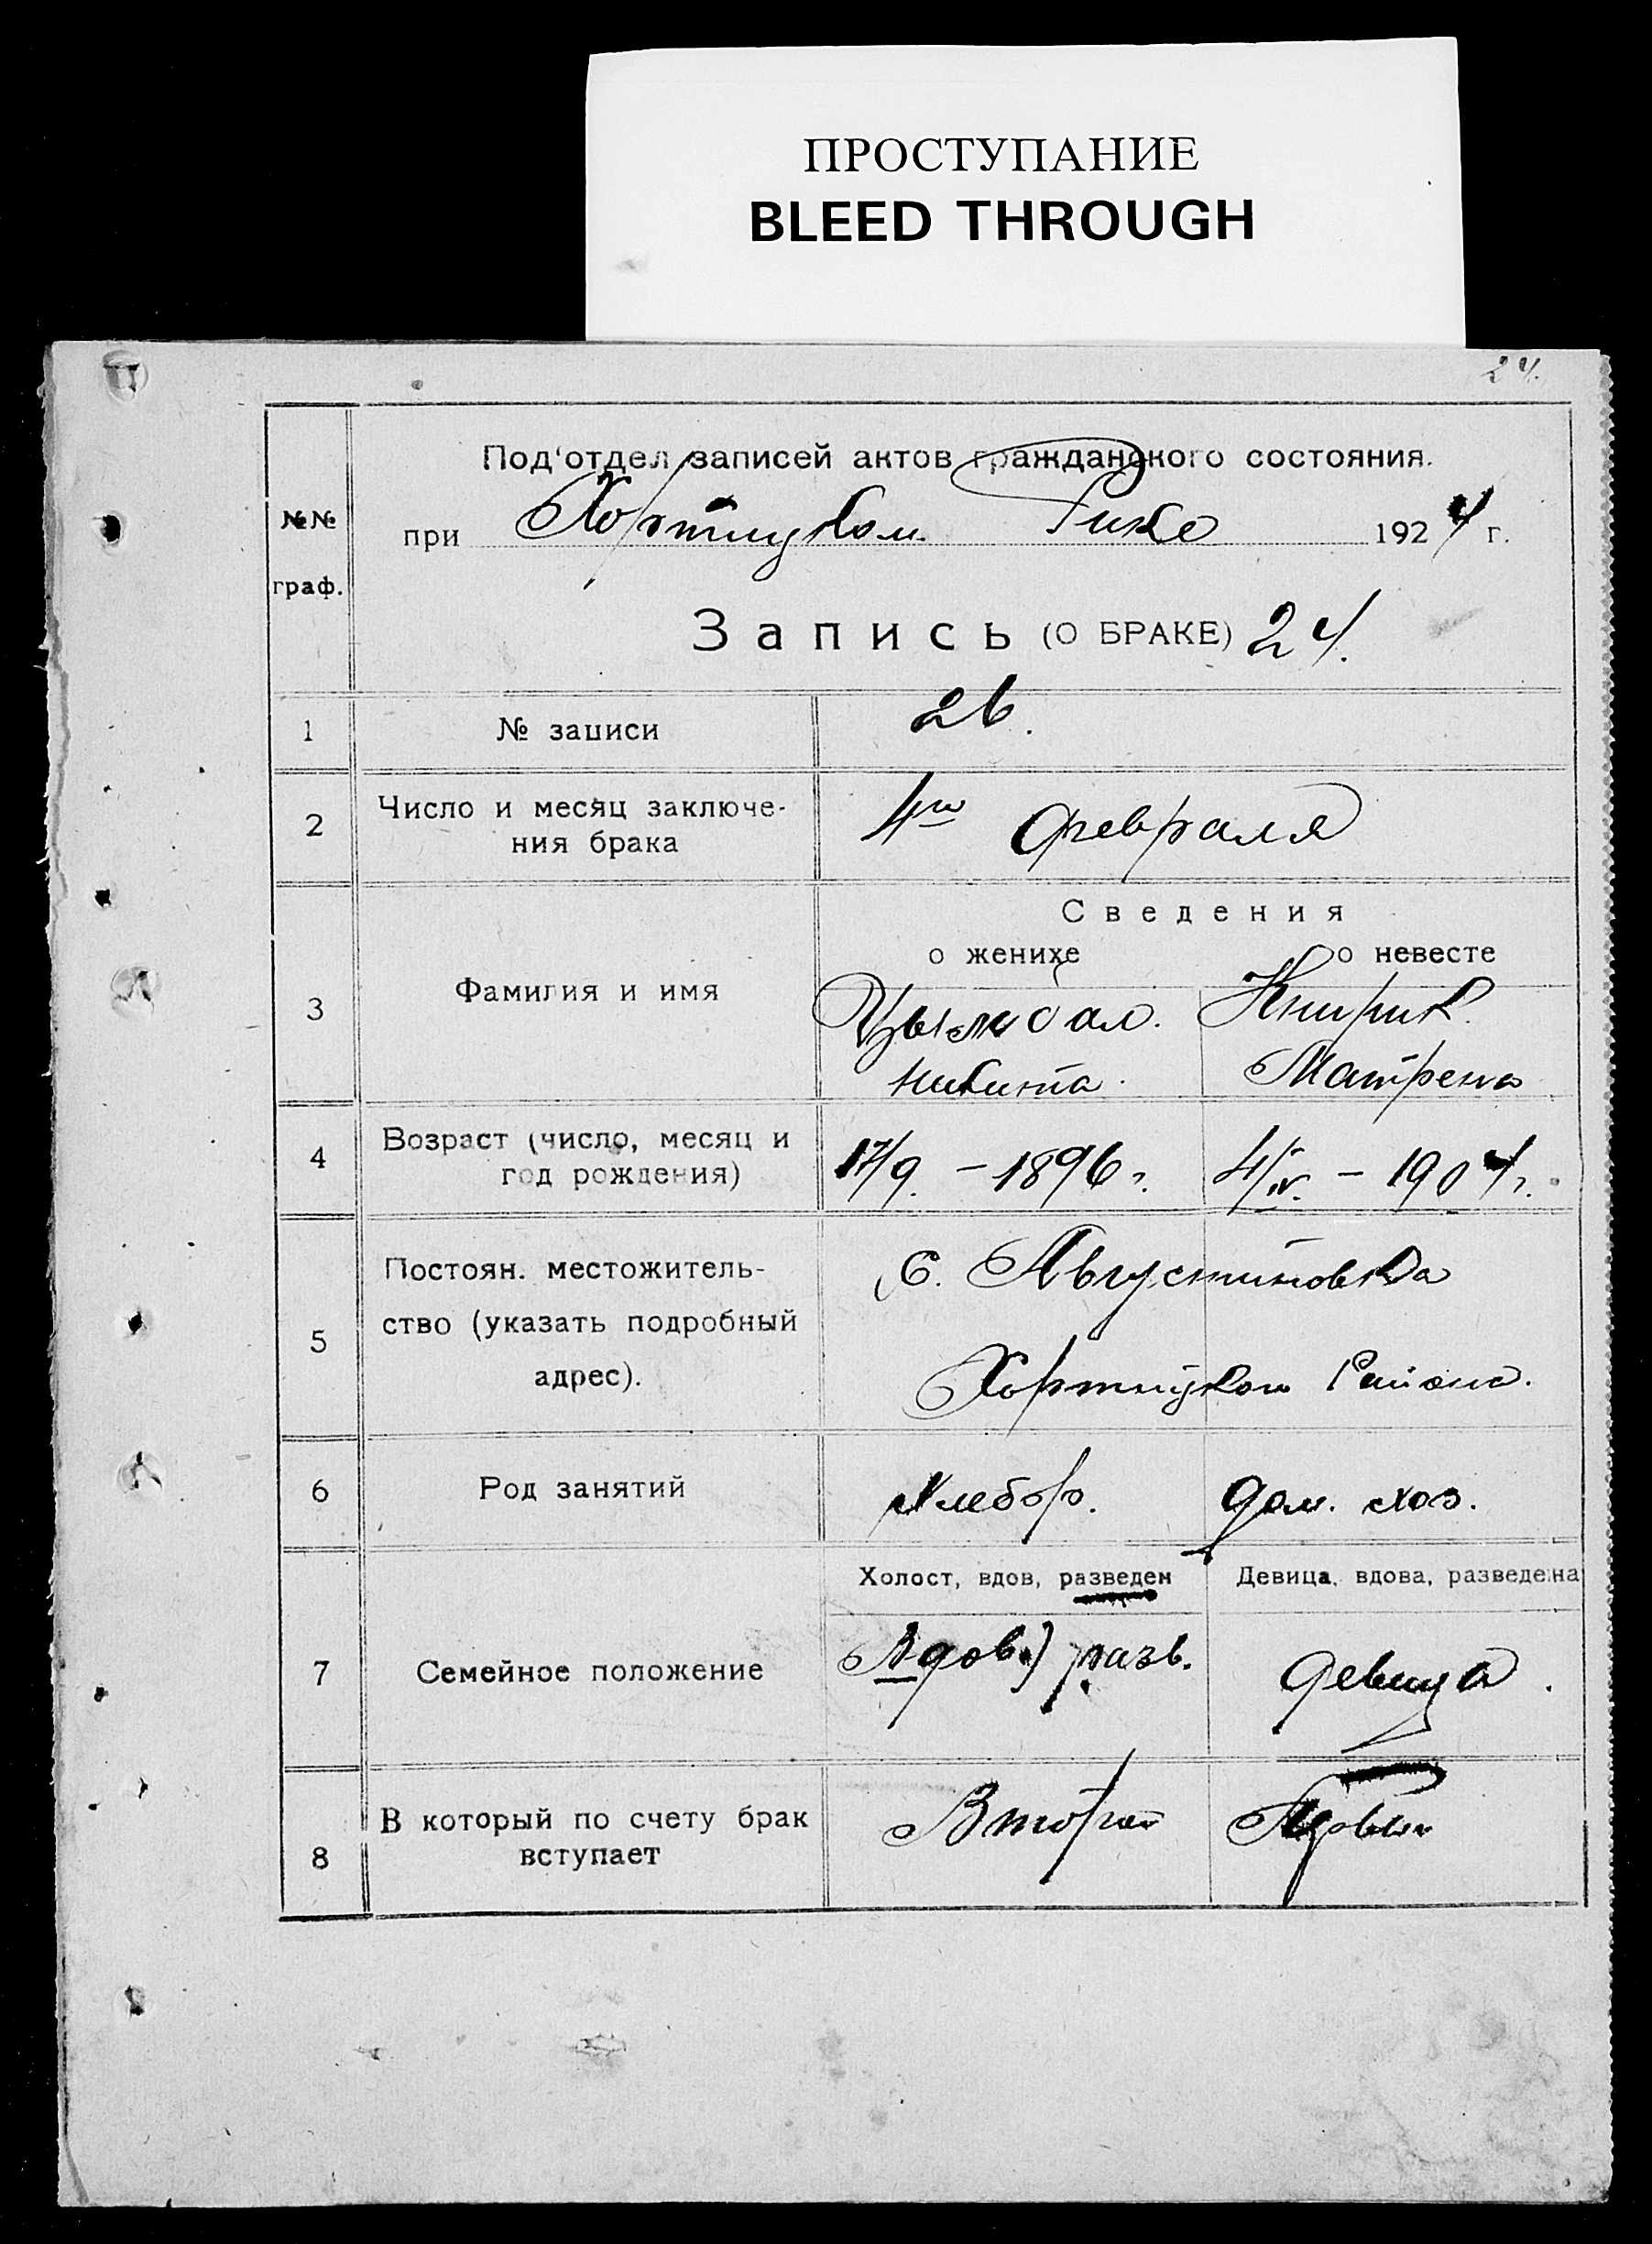 ПРОСТУПАНИЕ
BLEED THROUGH
24.
Под'отдел записей актов гражданского состояния.
№№
граф.
при Хортицком Рике 1924 г.
Запись (О БРАКЕ) 24.
1 № записи 26.
2 Число и месяц заключе-
ния брака
4го февраля
Сведения
о женихе о невесте
3 Фамилия и имя
Цымбал. Кнырик.
Никита. Матрена
4 Возраст (число, месяц и
год рождения)
17/9. – 1896 г. 4/IV. – 1904 г.
5 Постоян. местожитель-
ство (указать подробный
адрес).
С. Августиновка
Хортицкого Района.
6 Род занятий Хлебор. дом. хоз.
Холост, вдов, разведен Девица, вдова, разведена
7 Семейное положение Вдов.) разв. девица.
8 В который по счету брак
вступает
Второй Первый